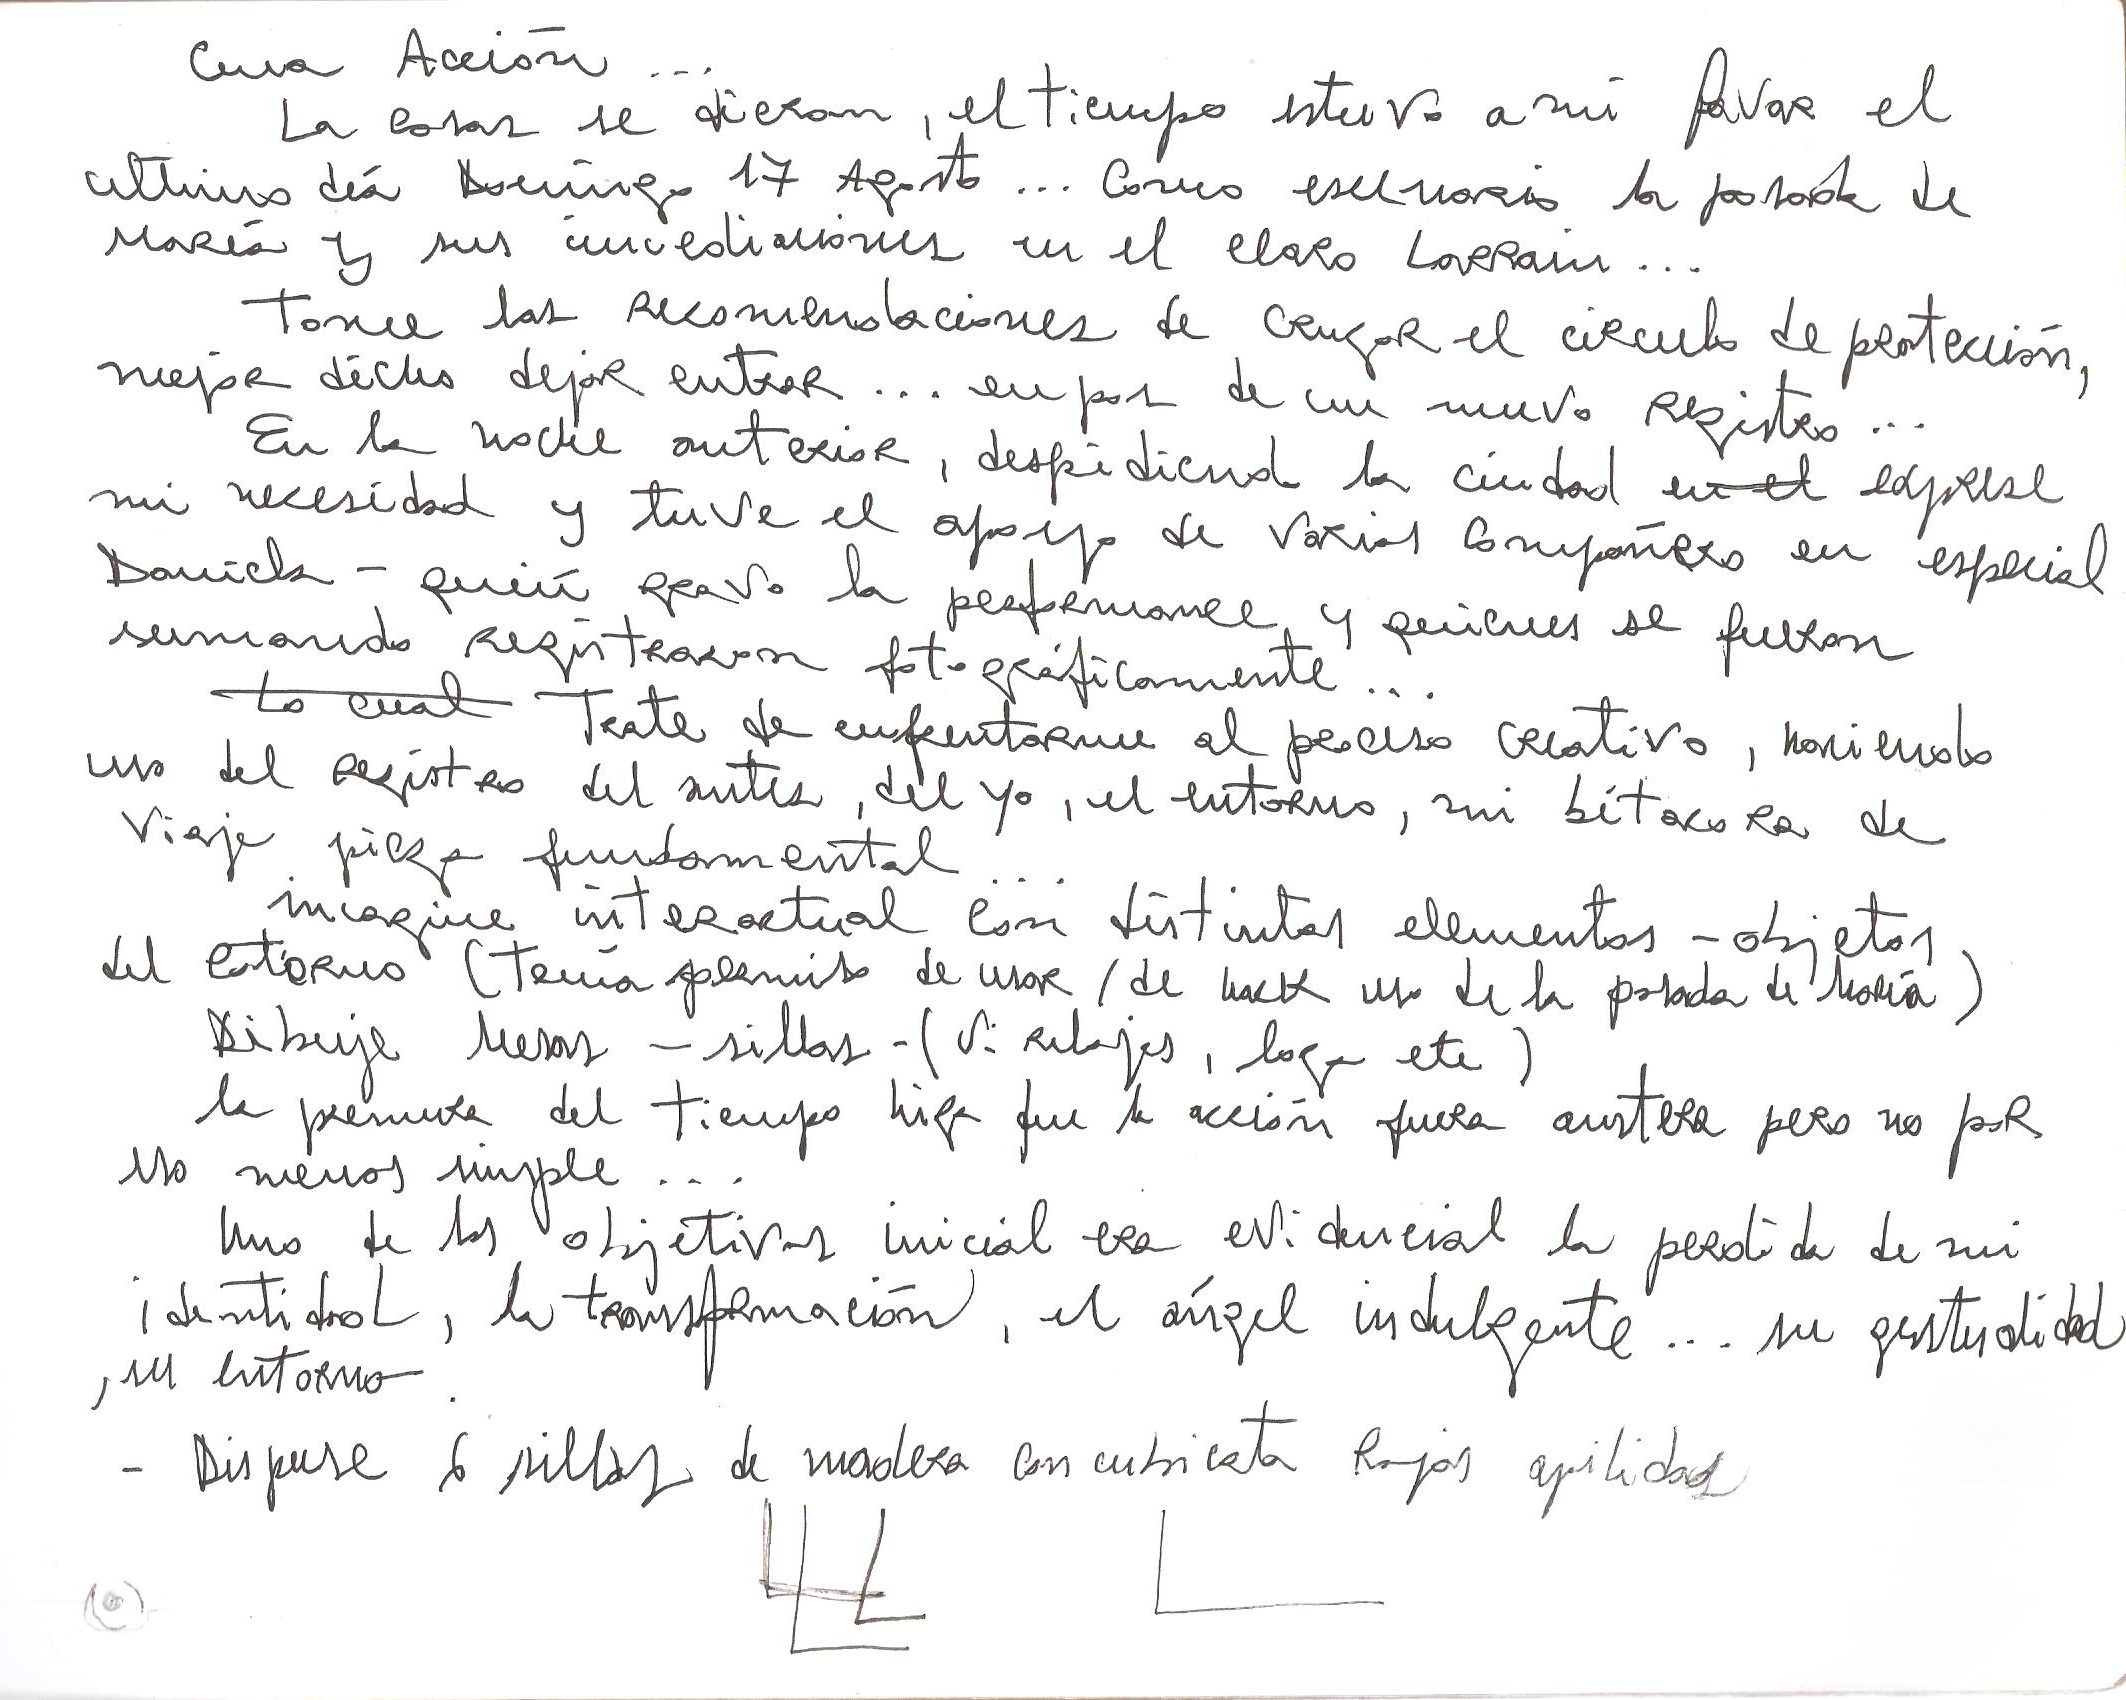 Una Acción...
La cosas se dieron, el tiempo estuvo a mi favor el
ultimo día Domingo 17 Agosto... Como escenario la posada de
María y sus inmediaciones en el claro Larrain...
Tome las recomendaciones de cruzar el circulo de protección,
mejor dicho dejar entrar... en pos de un nuevo registro...
En la noche anterior, despidiendo la ciudad en el exprese
mi necesidad y tuve el apoyo de varios compañero en especial
Daniela - quién gravo la performance y quienes se fueron
sumando registraron fotográficamente...
Lo cual Trate de enfrentarme al proceso creativo, haciendo
uso del registro del antes, del yo, el entorno, mi bitacora de
viaje pieza fundamental...
imagine interactual con distintos elementos - objetos
del entorno (tenía permiso de usar / de hacer uso de la posada de María)
Dibuje Mesas - sillas - (Vi relojes, loza etc)
la premura del tiempo hizo que la acción fuera austera pero no por
eso menos simple...
Uno de los objetivos inicial era evidencial la perdida de mi
identidad, la transformación, el ángel indulgente... su gestualidad
, su entorno.
- Dispuse 6 sillas de madera con cubierta rojas apilidas